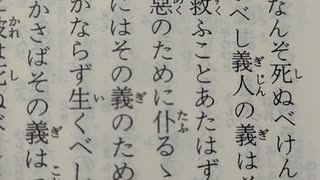 なんぞ死ぬべけん
べし義人の義はそ
救ふことあたはず
惡のために仆るゝ
にはその義のため
かならず生くべし
かさばその義は
彼は死ぬべ